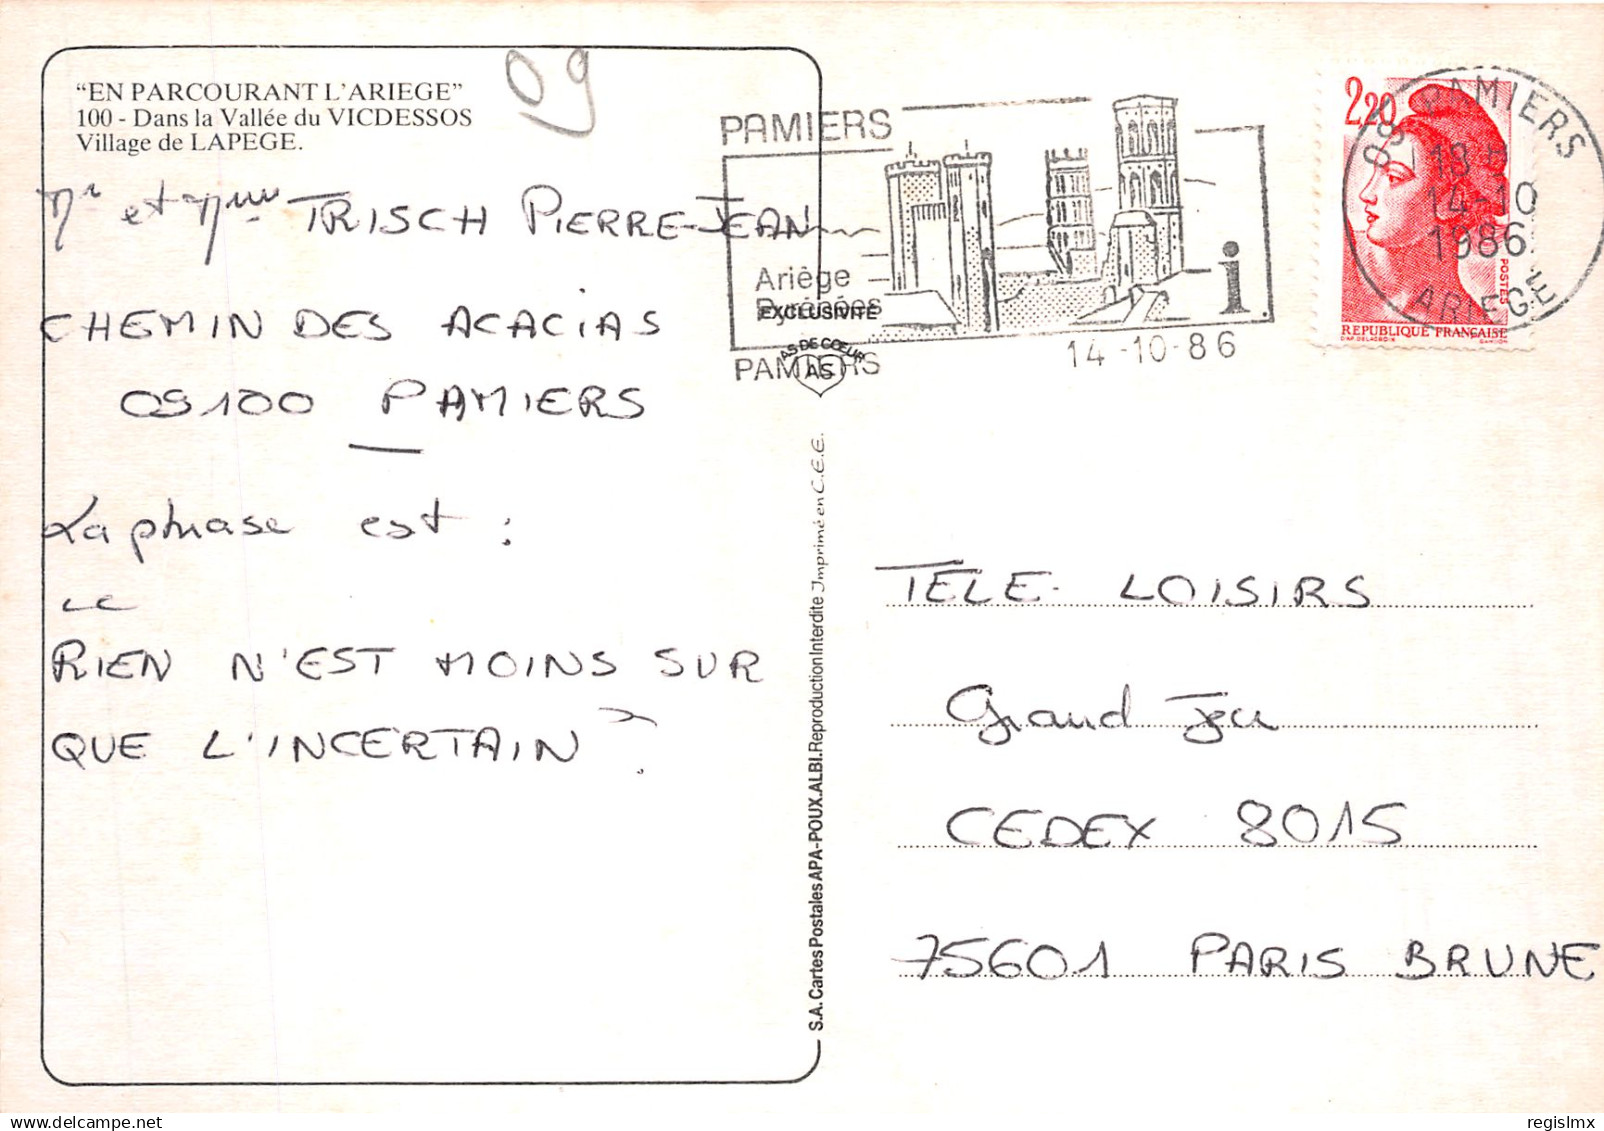 "EN PARCOURANT L'ARIEGE"
100 - Dans la Vallée du VICDESSOS
Village de LAPEGE.
09
Mr et Mme TRISCH PIERRE-JEAN
CHEMIN DES ACACIAS
09100 PAMIERS
La phrase est :
LE
RIEN N'EST MOINS SUR
QUE L'INCERTAIN ?
PAMIERS
Ariège
Pyrénées
EXCLUSIVITÉ
AS DE CŒUR
AS
PAMIERS
i
14-10-86
2,20
POSTES
REPUBLIQUE FRANÇAISE
D'AP. DELACROIX GANDON
09 PAMIERS
14-10
1986
ARIEGE
S.A. Cartes Postales APA-POUX.ALBI. Reproduction Interdite Imprimé en C.E.E.
TELE-LOISIRS
Grand Jeu
CEDEX 8015
75601 PARIS BRUNE
regislmx
delcampe.net